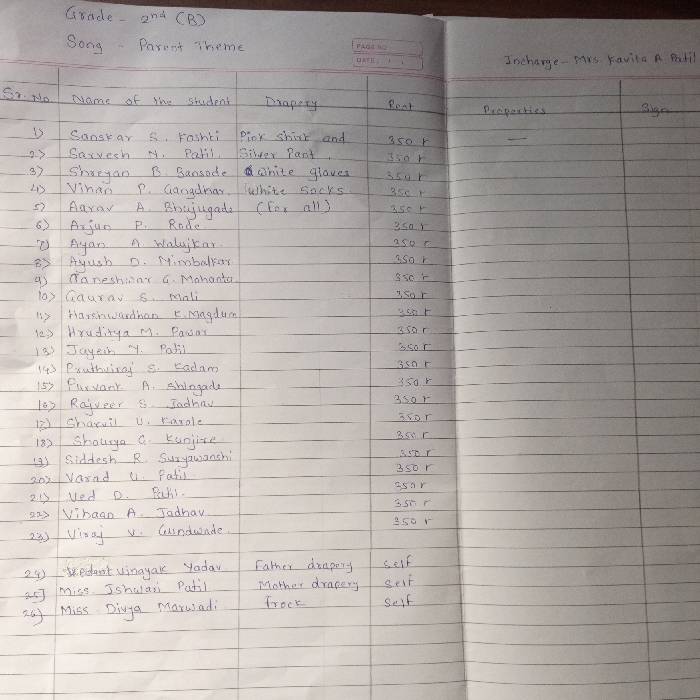 Grade - 2nd (B)
Song - Parent Theme
PAGE NO
DATE: / /
Incharge - Mrs. Kavita A. Patil
Sr. No Name of the student Drapery Rent Properties Sign
1) Sanskar S. Koshti Pink shirt and 350 r
2) Sarvesh N. Patil Silver Pant. 350 r
3) Shreyan B. Bansode white gloves 350 r
4) Vihan P. Gangdhar White socks 350 r
5) Aarav A. Bhujugade (for all) 350 r
6) Arjun P. Rode 350 r
7) Ayan A Walujkar 350 r
8) Ayush D. Nimbalkar 350 r
9) G. Mohanta 350 r
10) Gaurav S. Mali 350 r
11) Harshwardhan K. Magdum 350 r
12) Hruditya M. Pawar 350 r
13) Y. Patil 350 r
14) Pruthviraj S. Kadam 350 r
15) A. Shingade 350 r
16) Rajveer S. Jadhav 350 r
17) Sharvil U. Karole 350 r
18) Shourya G. Kunjire 350 r
19) Siddesh R. Suryawanshi 350 r
20) Varad U. Patil 350 r
21) Ved D. Patil. 350 r
22) Vihaan A. Jadhav 350 r
23) Viraj V. Gundwade. 350 r
24) Vedant Vinayak Yadav Father drapery self
25] Miss. Ishwari Patil Mother drapery self
26] Miss Divya Marwadi frock self